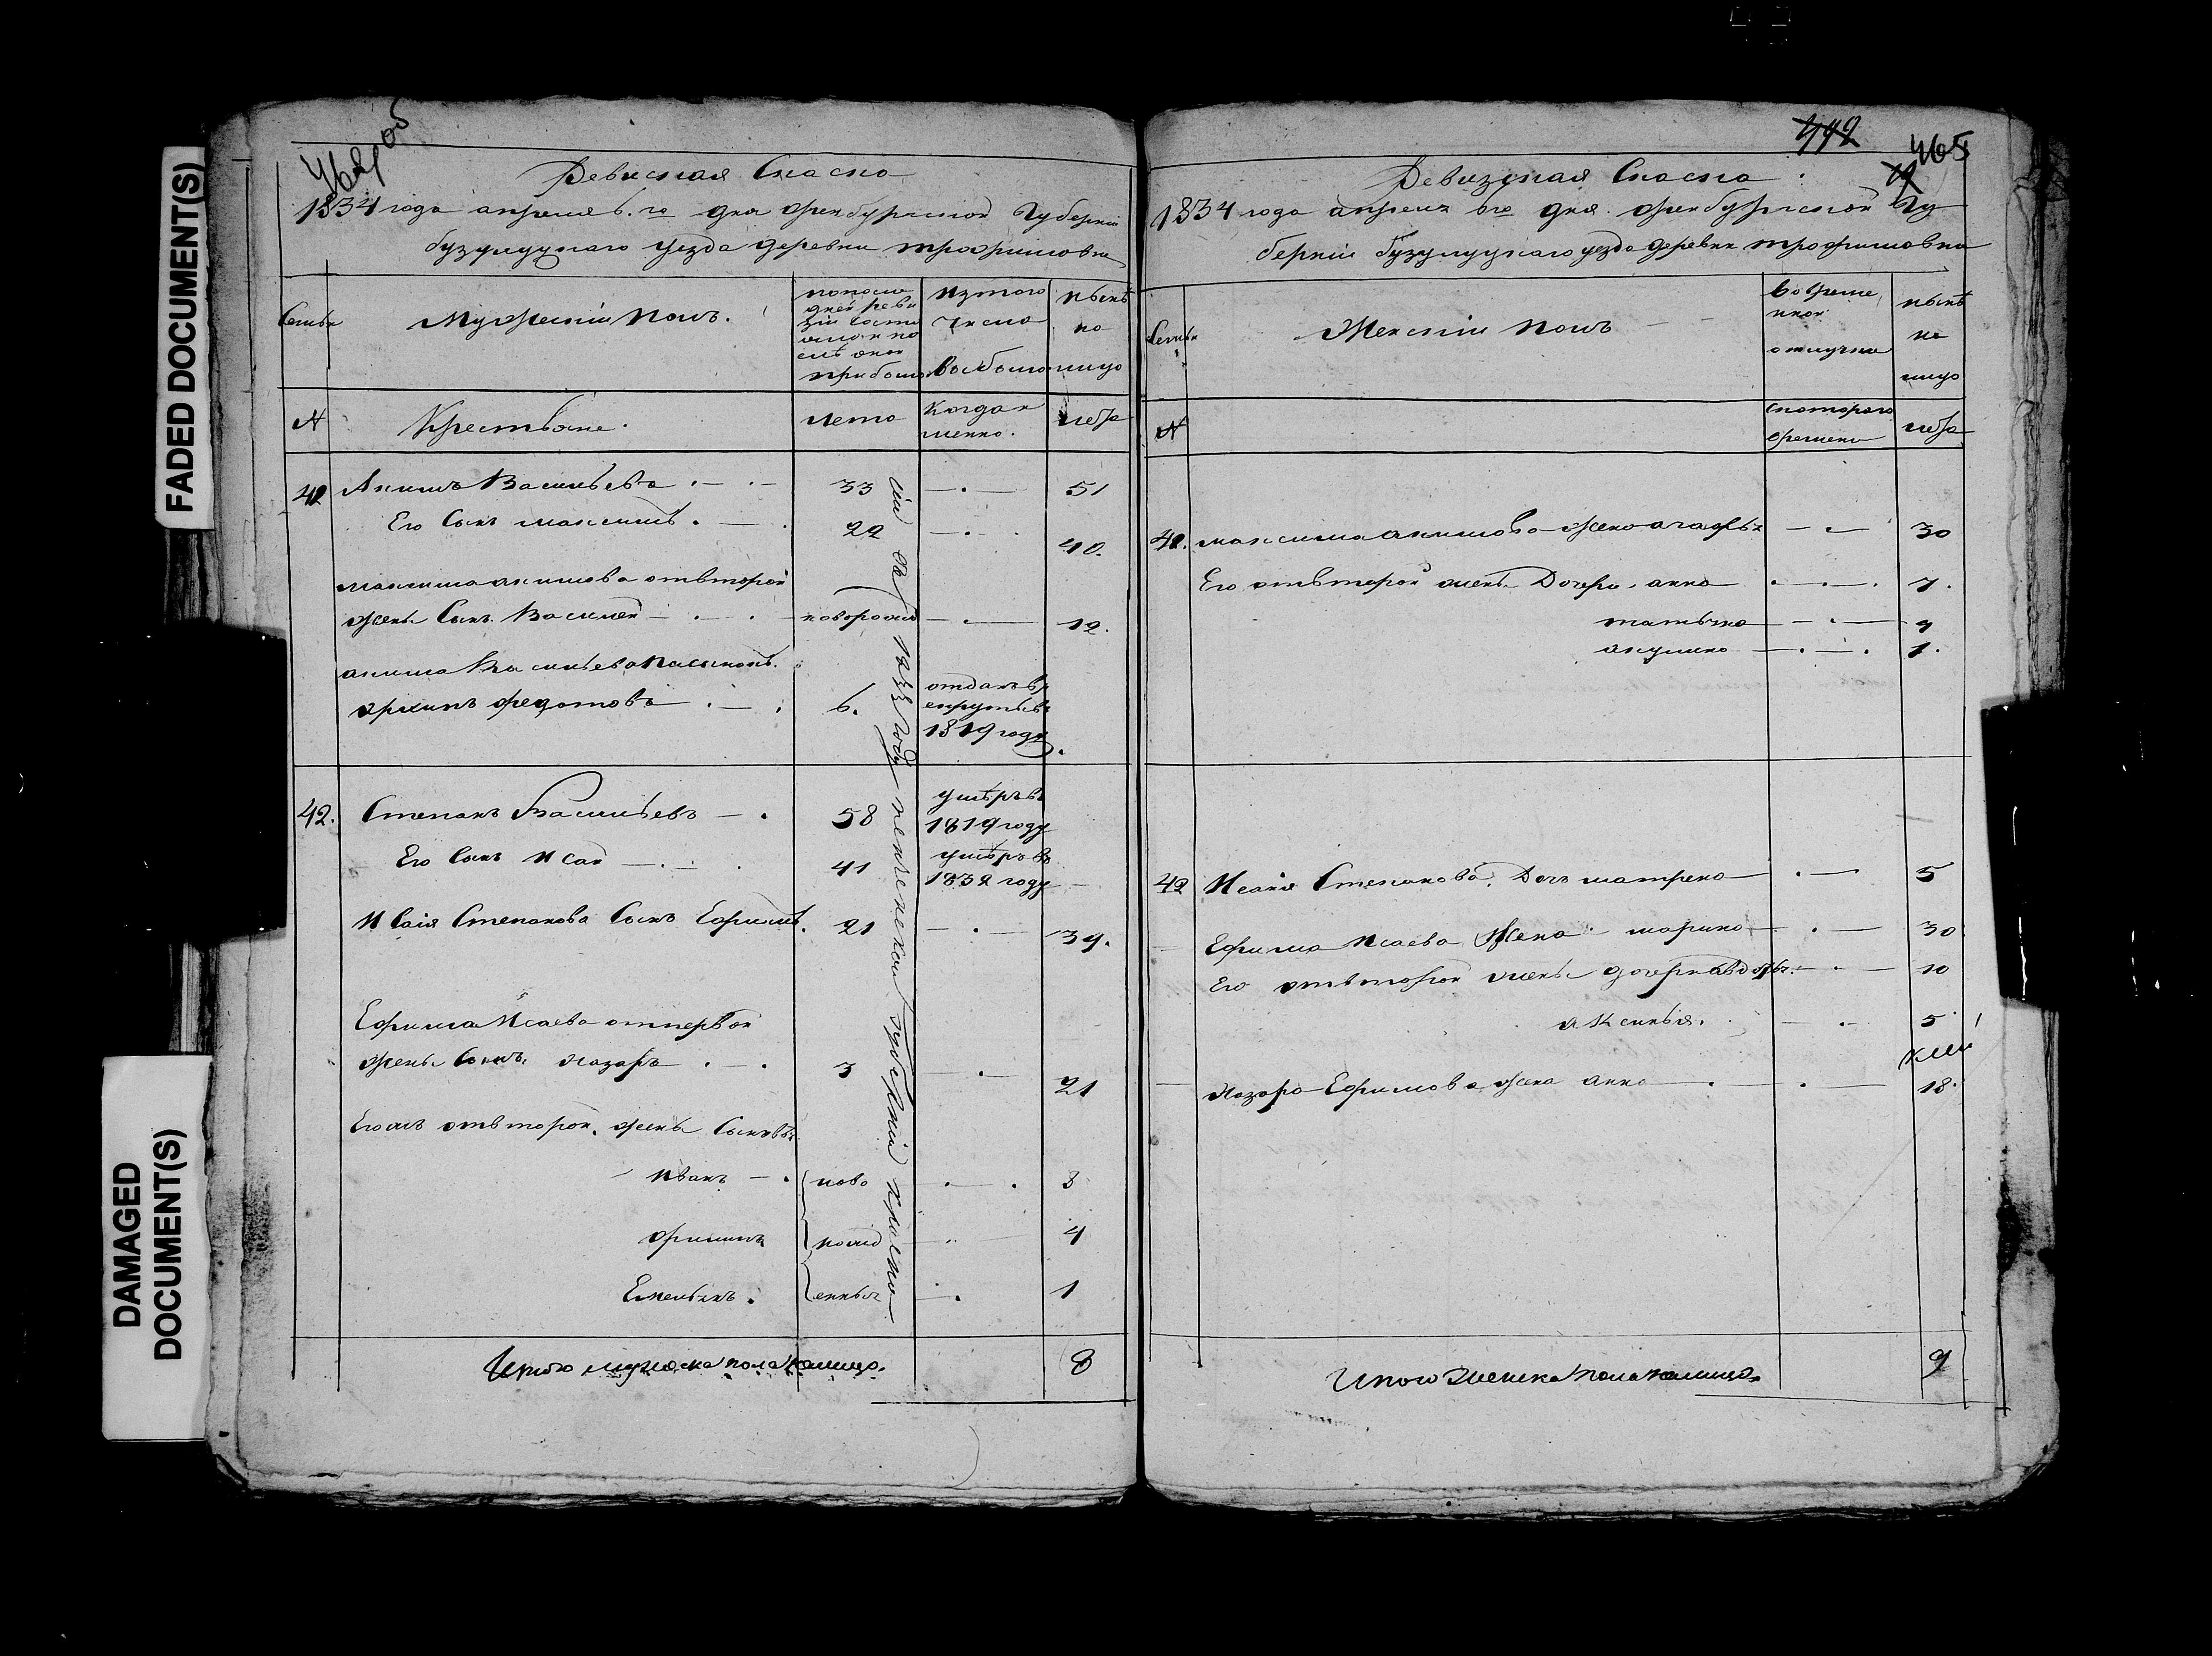 FADED DOCUMENT(S)
DAMAGED
DOCUMENT(S)
Ревиская Сказка
1834 года апреля 6.го дня оренбургской Губерніи
бузулуцкаго уезда деревни трофимовки
Семьи
Мужескій полъ.
по после
дней реви
зіи состо
яло и по
слѣ оной
прибыло
изтого
числа
выбыло
нынѣ
на
лицо
№
Крестьяне.
лета
когда и
менно.
лета
42
Акимъ Васильевъ
33
51
Его Сынъ максимъ
22
40.
максима акимова отвторой
жены Сынъ Василей
новорожд
12.
акима Васильева пасынокъ
архипъ федотовъ
6.
отданъ в р
екруты въ
1819 году
42.
Степанъ Васильевъ
58
умѣръ въ
1819 году
Его Сынъ Исай
41
умѣръ въ
1832 году
Исаія Степанова Сынъ Ефимъ.
21
39.
Ефима Исаева отпервой
жены Сынъ назаръ
3
21
Егожъ отвторой жены Сыновья
иванъ
ново
8
филипъ
рожд
4
Емельянъ.
енныя
1
Итого мужеска пола налицо.
8
442
465
Ревизская Сказка
1834 года апреля 6го дня оренбургской Гу
берніи бузулуцкаго уезда деревни трофимовки
Семьи
Женскій полъ
во време
нной
отлучке
нынѣ
на
лицо
№
скоторого
времени
лета
42.
максима акимова жена агафья
30
Его отвторой жены Дочери анна
7.
татьяна
4
акулина
1.
42
Исаія Степанова Дочь матрена
5
Ефима Исаева Жена марина
30
Его отвторой жены дочери авдотья
10
аксинья.
5
назара Ефимова жена анна
18.
Итого женска пола налицо.
9